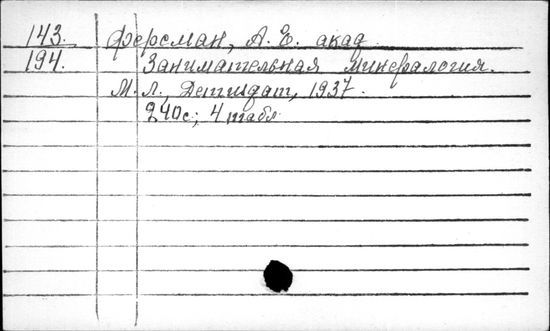 143. Ферсман, А. Е. акад
194. Занимательная минералогия.
М. Л., Детиздат, 1937.
240с; 4 табл